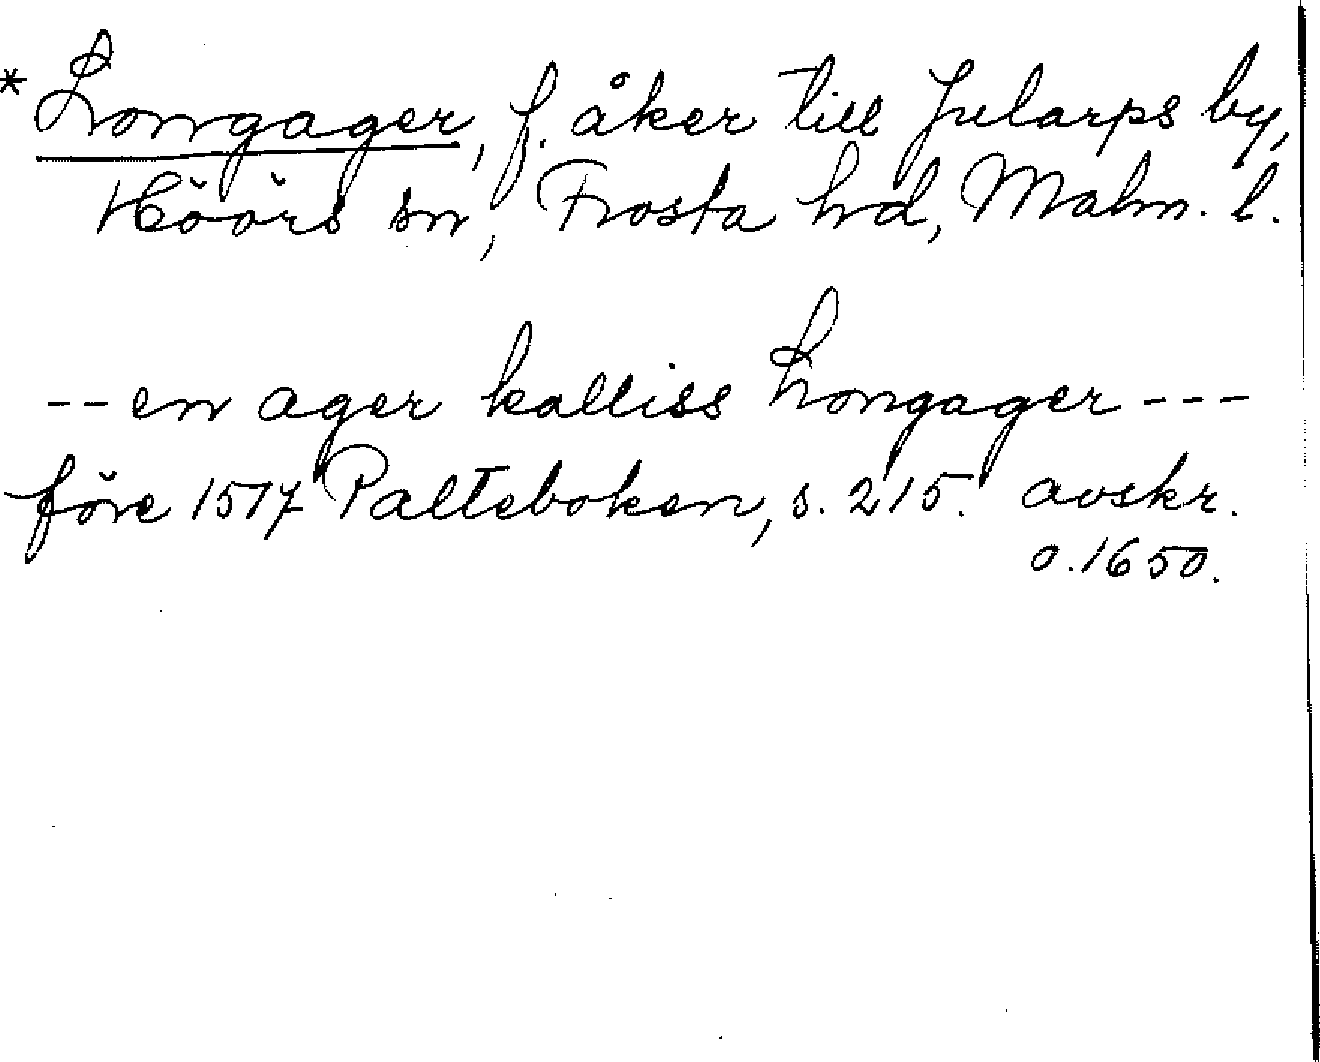 * Longager, f. åker till Jularps by,
Höörs sn, Frosta hd, Malm. l.
-- en ager kalliss Longager ---
före 1517 Palteboken, s. 215. avskr.
o. 1650.